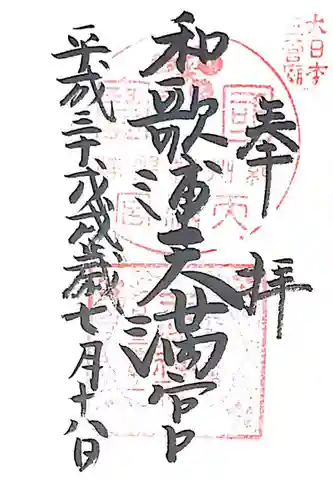 大日本
三菅廟
奉拝
和歌浦天満宮
平成三十戊戌歳七月十八日